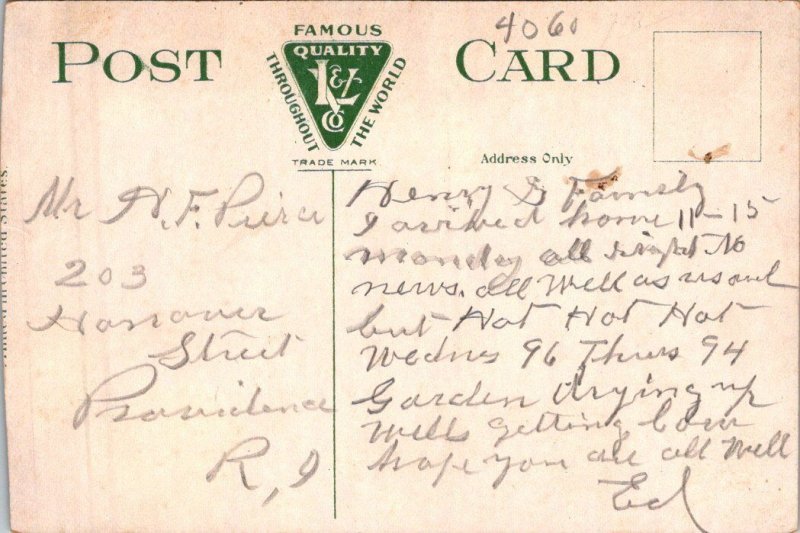 4060
POST CARD
FAMOUS
QUALITY
THROUGHOUT THE WORLD
N & L
CO
TRADE MARK
Address Only
Mr H. F. Pierce
203
Hanover
Street
Providence
R, I
Henry & Family
I arrived home 11-15
Monday all right No
news. all well as usual
but Hot Hot Hot
Wednes 96 Thurs 94
Garden drying up
Wells getting low
hope you are all well
Ed